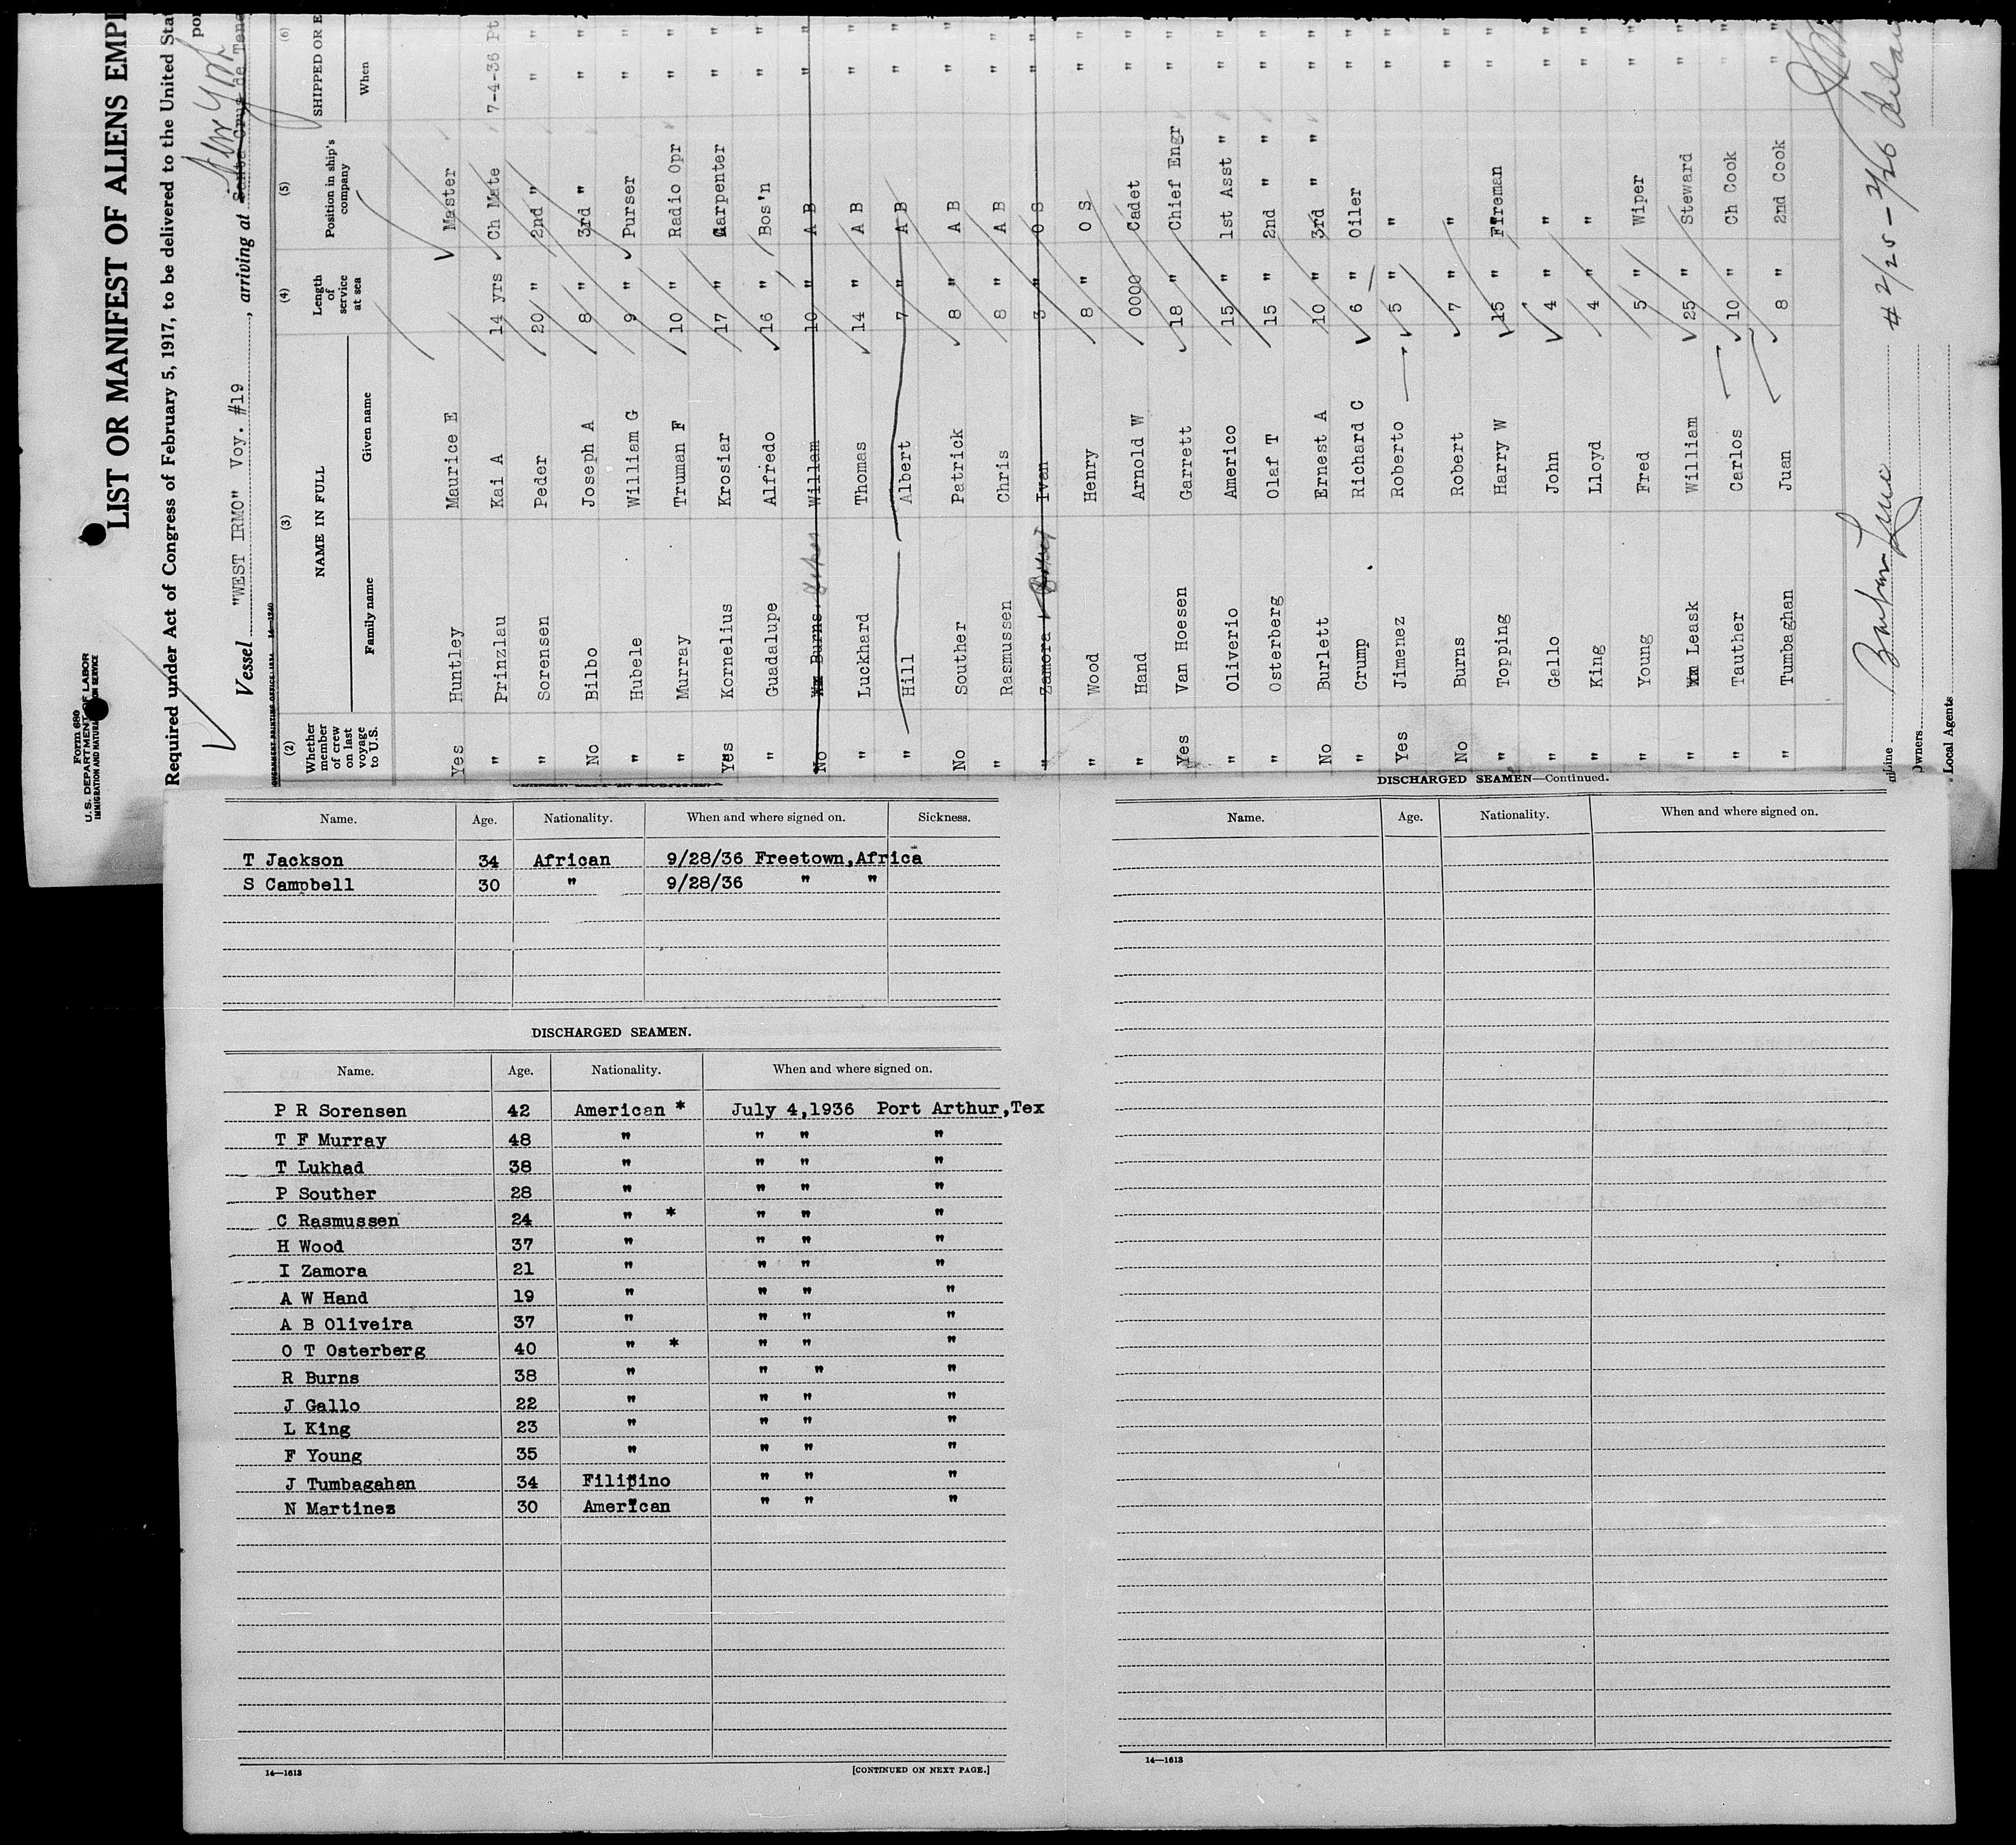 Form 680
U. S. DEPARTMENT OF LABOR
IMMIGRATION AND NATURALIZATION SERVICE
LIST OR MANIFEST OF ALIENS EMPL
Required under Act of Congress of February 5, 1917, to be delivered to the United Stat
Vessel "WEST IRMO" Voy. #19 , arriving at Santa Cruz de Tene
New York
(2) (3) (4) (5) (6)
Whether member of crew on last voyage to U.S. NAME IN FULL Family name Given name Length of service at sea Position in ship's company SHIPPED OR E When
Yes Huntley Maurice E Master
" Prinzlau Kai A 14 yrs Ch Mate 7-4-36 Pt
" Sorensen Peder 20 " 2nd " " "
No Bilbo Joseph A 8 " 3rd " " "
" Hubele William G 9 " Purser " "
" Murray Truman F 10 " Radio Opr " "
Yes Kornelius Krosiar 17 " Carpenter " "
" Guadalupe Alfredo 16 " Bos'n " "
No Burns Willam 10 " A B " "
" Luckhard Thomas 14 " A B " "
" Hill Albert 7 " A B " "
No Souther Patrick 8 " A B " "
" Rasmussen Chris 8 " A B " "
" Zamora Ivan 3 " O S " "
" Wood Henry 8 " O S " "
" Hand Arnold W 0000 Cadet " "
Yes Van Hoesen Garrett 18 " Chief Engr " "
" Oliverio Americo 15 " 1st Asst " " "
" Osterberg Olaf T 15 " 2nd " " " "
No Burlett Ernest A 10 " 3rd " " " "
" Crump Richard C 6 " Oiler " "
Yes Jimenez Roberto 5 " " " "
No Burns Robert 7 " " " "
" Topping Harry W 15 " Fireman " "
" Gallo John 4 " " " "
" King Lloyd 4 " " " "
" Young Fred 5 " Wiper " "
" Leask William 25 " Steward " "
" Tauther Carlos 10 " Ch Cook " "
" Tumbaghan Juan 8 " 2nd Cook " "
Line
Owners
Local Agents
Name. Age. Nationality. When and where signed on. Sickness.
T Jackson 34 African 9/28/36 Freetown,Africa
S Campbell 30 " 9/28/36 " "
DISCHARGED SEAMEN.
Name. Age. Nationality. When and where signed on.
P R Sorensen 42 American * July 4,1936 Port Arthur,Tex
T F Murray 48 " " " "
T Lukhad 38 " " " "
P Souther 28 " " " "
C Rasmussen 24 " * " " "
H Wood 37 " " " "
I Zamora 21 " " " "
A W Hand 19 " " " "
A B Oliveira 37 " " " "
O T Osterberg 40 " * " " "
R Burns 38 " " " "
J Gallo 22 " " " "
L King 23 " " " "
F Young 35 " " " "
J Tumbagahan 34 Filipino " " "
N Martinez 30 American " " "
14—1613 [CONTINUED ON NEXT PAGE.]
DISCHARGED SEAMEN—Continued.
Name. Age. Nationality. When and where signed on.
14—1613